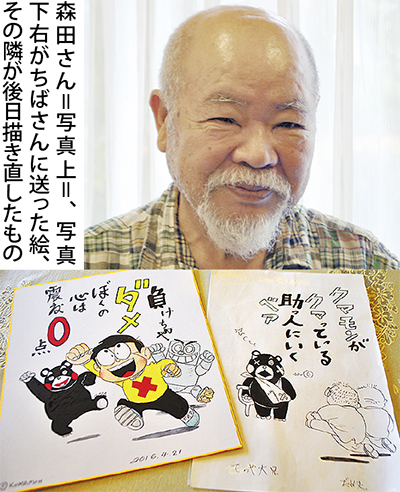 森田さん＝写真上＝、写真
下右がちばさんに送った絵、
その隣が後日描き直したもの
負けちゃ
ダメ
ぼくの
心は
震度0点
2016.4.21
クマモンが
クマっている
助っ人にいく
ベア